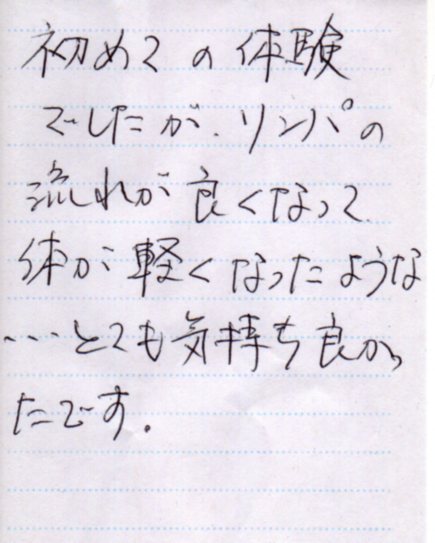 初めての体験
でしたが、リンパの
流れが良くなって
体が軽くなったような
…とても気持ち良かっ
たです。